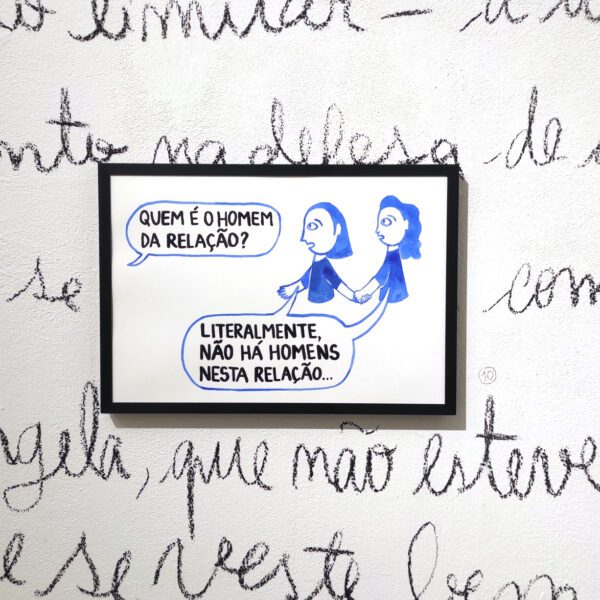 limitar —
nto na defesa de
QUEM É O HOMEM
DA RELAÇÃO?
se com
LITERALMENTE,
NÃO HÁ HOMENS
NESTA RELAÇÃO...
10
ngela, que não esteve
e se veste bem